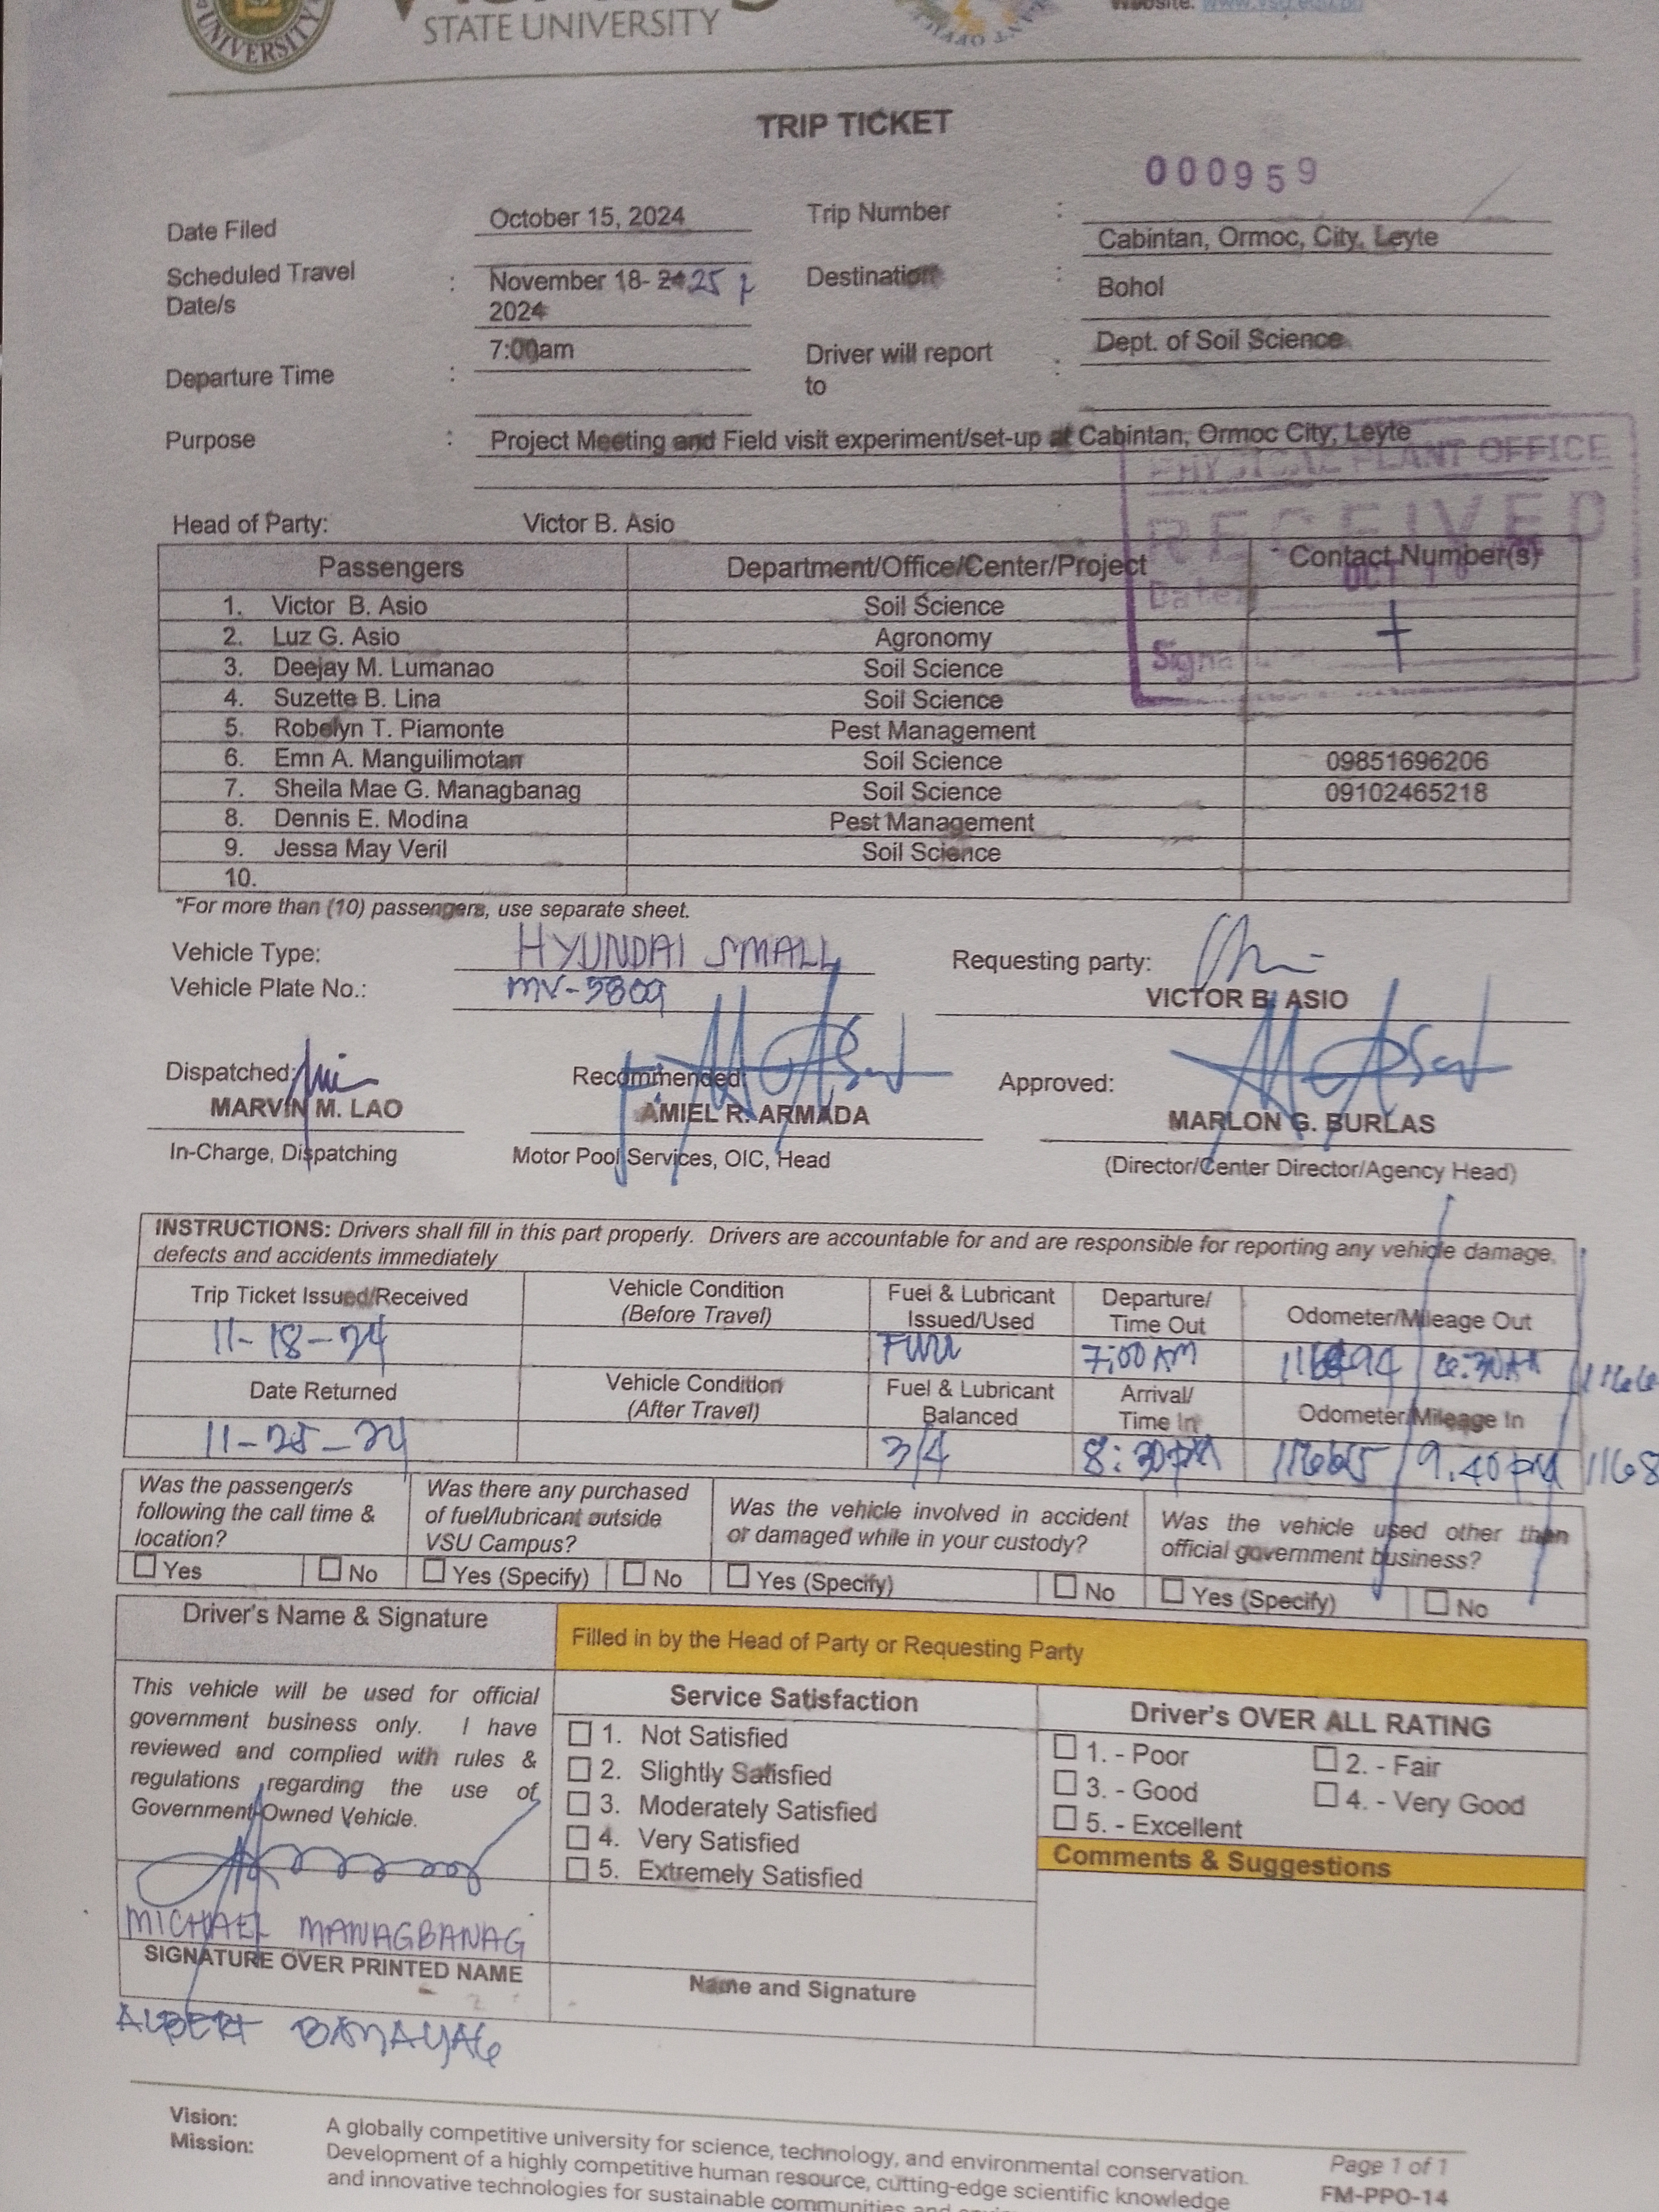 UNIVERSITY
STATE UNIVERSITY
Website: www.vsu.edu.ph
TRIP TICKET
000959
Date Filed October 15, 2024 Trip Number :
Cabintan, Ormoc, City, Leyte
Scheduled Travel Date/s : November 18- 24 25 2024 Destination : Bohol
Departure Time : 7:00am Driver will report to : Dept. of Soil Science
Purpose : Project Meeting and Field visit experiment/set-up at Cabintan, Ormoc City, Leyte
PHYSICAL PLANT OFFICE
RECEIVED
Date
Signature
Head of Party: Victor B. Asio
Passengers Department/Office/Center/Project Contact Number(s)
1. Victor B. Asio Soil Science
2. Luz G. Asio Agronomy
3. Deejay M. Lumanao Soil Science
4. Suzette B. Lina Soil Science
5. Robelyn T. Piamonte Pest Management
6. Emn A. Manguilimotan Soil Science 09851696206
7. Sheila Mae G. Managbanag Soil Science 09102465218
8. Dennis E. Modina Pest Management
9. Jessa May Veril Soil Science
10.
*For more than (10) passengers, use separate sheet.
Vehicle Type: HYUNDAI SMALL
Vehicle Plate No.:
Requesting party:
VICTOR B. ASIO
Dispatched: Recommended: Approved:
MARVIN M. LAO AMIEL R. ARMADA MARLON G. BURLAS
In-Charge, Dispatching Motor Pool Services, OIC, Head (Director/Center Director/Agency Head)
INSTRUCTIONS: Drivers shall fill in this part properly. Drivers are accountable for and are responsible for reporting any vehicle damage,
defects and accidents immediately
Trip Ticket Issued/Received Vehicle Condition (Before Travel) Fuel & Lubricant Issued/Used Departure/ Time Out Odometer/Mileage Out
11-18-24 Full 7:00 AM
Date Returned Vehicle Condition (After Travel) Fuel & Lubricant Balanced Arrival/ Time In Odometer/Mileage In
11-25-24 3/4 8:30 PM 9:40 PM
Was the passenger/s following the call time & location?
Yes No
Was there any purchased of fuel/lubricant outside VSU Campus?
Yes (Specify) No
Was the vehicle involved in accident or damaged while in your custody?
Yes (Specify) No
Was the vehicle used other than official government business?
Yes (Specify) No
Driver's Name & Signature
Filled in by the Head of Party or Requesting Party
This vehicle will be used for official
government business only. I have
reviewed and complied with rules &
regulations regarding the use of
Government-Owned Vehicle.
MICHAEL MANAGBANAG
SIGNATURE OVER PRINTED NAME
Service Satisfaction
1. Not Satisfied
2. Slightly Satisfied
3. Moderately Satisfied
4. Very Satisfied
5. Extremely Satisfied
Name and Signature
Driver's OVER ALL RATING
1. - Poor 2. - Fair
3. - Good 4. - Very Good
5. - Excellent
Comments & Suggestions
ALBERT
Vision: A globally competitive university for science, technology, and environmental conservation.
Mission: Development of a highly competitive human resource, cutting-edge scientific knowledge
and innovative technologies for sustainable communities and
Page 1 of 1
FM-PPO-14